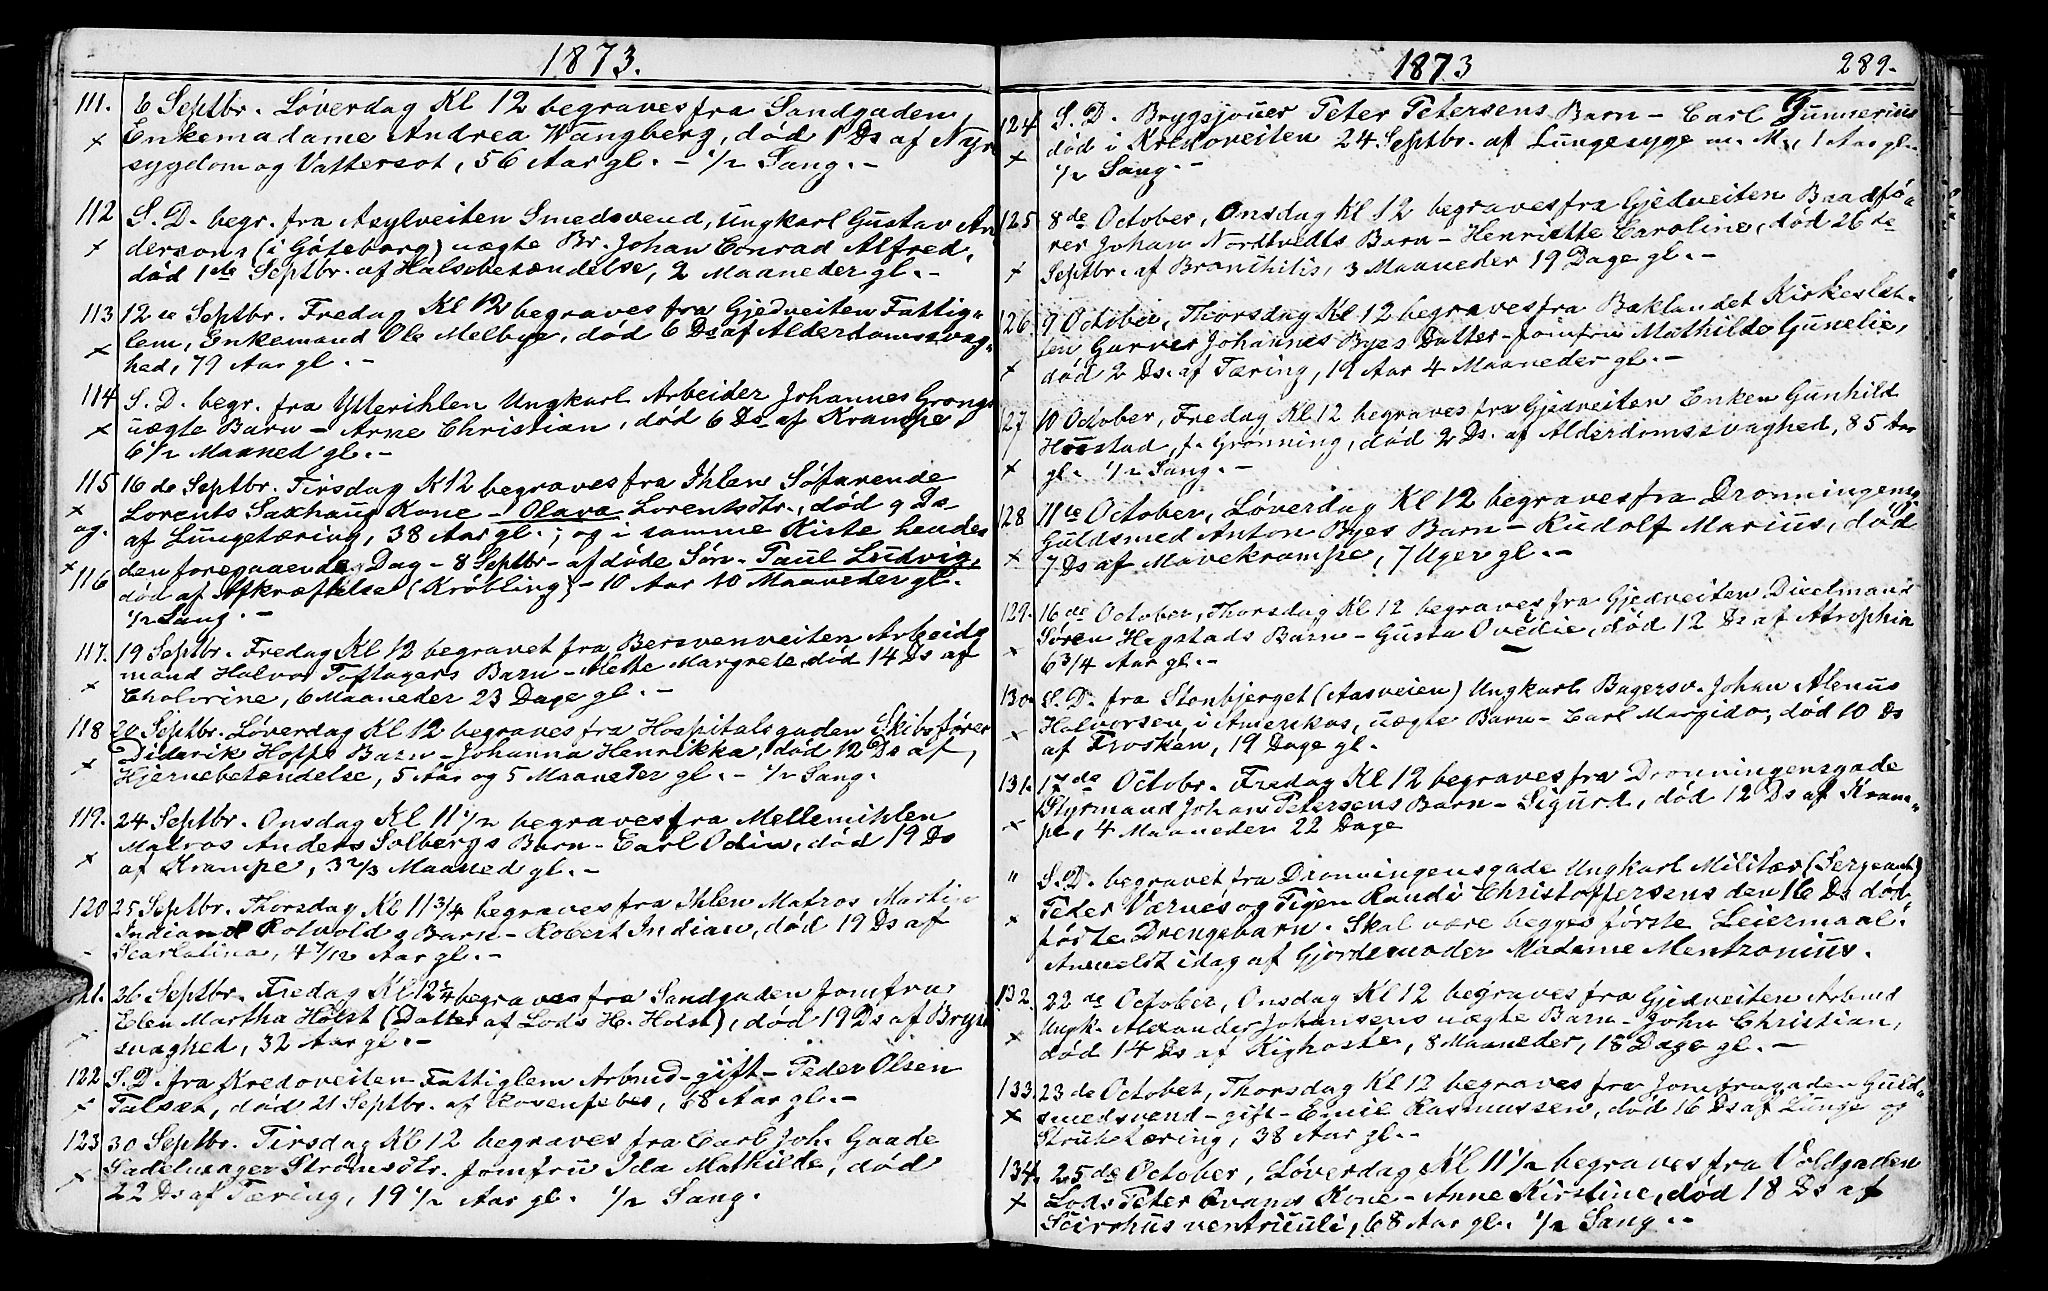 1873.
111. 6 Septbr. Löverdag Kl 12 begraves fra Sandgaden,
Enkemadame Andrea Wangberg, död 1 Ds af Nyre
x sygdom og Vattersot, 56 Aar gl. - 1/2 Sang. -
112 S. D. begr. fra Asylveiten Smedsvend, Ungkarl Gustav An
x dersons (i Göteborg) uægte Br. Johan Conrad Alfred,
död 1de Septbr. af Halsbetændelse, 2 Maaneder gl. -
113 12te Septbr. Fredag Kl 12 begraves fra Gjedveiten Fattig-
x lem, Enkemand Ole Melbye, död 6 Ds af Alderdomssvag-
hed, 79 Aar gl. -
114 S. D. begr. fra Ytterihlen Ungkarl Arbeider Johannes Grongs
x uægte Barn - Arne Christian, död 6 Ds af Krampe,
6 1/2 Maaned gl. -
115 16 de Septbr. Tirsdag K 12 begraves fra Ihlen Söfarende
x Lorents Saxhaug Kone - Olava Lorentsdtr., död 9 Ds
og. af Lungetæring, 38 Aar gl.; og i samme Kiste hendes
x den foregaaende Dag - 8 Septbr - afdöde Sön - Paul Ludvig,
116 död af Afkræftelse (Kröbling) - 10 Aar 10 Maaneder gl.
1/2 Sang. -
117. 19 Septbr. Fredag Kl 12 begravet fra Bersvenveiten Arbeids
mand Halvor Toftagers Barn - Mette Margrete, död 14 Ds af
x Cholorine, 6 Maaneder 23 Dage gl. -
118 20 Septbr. Löverdag Kl 12 begraves fra Hospitalsgaden Skibsförer
Diderik Hoffs Barn - Johanna Henrikka, död 12 Ds af,
x Hjernebetændelse, 5 Aar og 5 Maaneder gl. - 1/2 Sang.
119. 24 Septbr. Onsdag Kl 11 1/2 begraves fra Mellemihlen
Matros Anders Solbergs Barn - Carl Odin, död 19 Ds
x af Krampe, 3 2/3 Maaned gl. -
120 25 Septbr. Thorsdag Kl 11 3/4 begraves fra Ihlen Matros Martin
Indian Rotvolds Barn - Robert Indian, död 19 Ds af
- Scarlatina, 4 7/12 Aar gl. -
121. 26 Septbr. Fredag Kl 12 1/4 begraves fra Sandgaden Jomfru
Elen Martha Holst (Datter af Lods H. Holst), död 19 Ds af Bryst
svaghed, 32 Aar gl. -
122 S. D. fra Kredoveiten Fattiglem Arbmd - gift - Peder Olsen
x Talsæt, död 21 Septbr. af 68 Aar gl. -
123 30 Septbr. Tirsdag Kl 12 begraves fra Carl Joh. Gaade
x Sadelmager Strömsdtr. Jomfru Ida Mathilde, död
22 Ds af Tæring, 19 1/2 Aar gl. 1/2 Sang.
1873 289.
124 S. D. Brygsjouer Peter Petersens Barn - Carl Gunnerius
x död i Kredoveiten 24 Septbr. af Lungesyge m. M., 1 Aar gl.
1/2 Sang. -
125. 8de October, Onsdag Kl 12 begraves fra Gjedveiten Baadfö-
rer Johan Nordtvedts Barn - Henriette Caroline, död 26 de
x Septbr. af Bronchitis, 3 Maaneder 19 Dage gl. -
126. 9 October, Thorsdag Kl 12 begraves fra Baklandet Kirkeslet-
ten Garver Johannes Byes Datter - Jomfru Mathilde Gunelie,
x död 2 Ds. af Tæring, 19 Aar 4 Maaneder gl. -
127 10 October, Fredag Kl 12 begraves fra Gjedveiten Enken Gunhild
Hustad, f. Grönning, död 2 Ds. af Alderdomssvaghed, 85 Aar
x gl. 1/2 Sang. -
128 11te October, Löverdag Kl 12 begraves fra Dronningensg
Guldsmed Anton Byes Barn - Rudolf Marius, död
x 7 Ds af Mavekrampe, 7 Uger gl. -
129. 16 de October, Thorsdag Kl 12 begraves fra Gjedveiten Dicelmand
Sören Hegstads Barn - Gusta Ovedie, död 12 Ds af Atrophia
x 6 3/4 Aar gl. -
130. S. D. fra Stenbjerget (Aasveien) Ungkarl Bagersv. Johan Alenus
Halvorsen, i Amerikas, uægte Barn - Carl Margido, död 10 Ds
x af Frosken, 19 Dage gl.
131. 17 de Octobr. Fredag Kl 12 begraves fra Dronningensgade
Styrmand Johan Petersens Barn - Sigurd, död 12 Ds af Kram-
x pe, 4 Maaneder 22 Dage
" S. D. begravet fra Dronningensgade Ungkarl Militær (Sergeant)
x Peter Varnes og Pigen Randi Christoffersens den 16 Ds död,
födte Drengebarn. Skal være begges förste Leiermaal.
Anmeldt idag af Gjordemoder Madame Mentzonius.
132. 22 de October, Onsdag Kl 12 begraves fra Gjedveiten Arbmd
x Ungk. Alexander Johansens uægte Barn - John Christian,
död 14 Ds af Kighoste, 8 Maaneder, 18 Dage gl. -
133. 23 de October, Thorsdag Kl 12 begraves fra Jomfrugaden Guld-
x smedsvend - gift - Emil Rasmussen, död 16 Ds af Lunge og
Strubetæring, 38 Aar gl. -
134. 25 de October, Löverdag Kl 11 1/2 begraves fra Voldgaden
x Lods Peter Evans Kone - Anne Kirstine, död 18 Ds af
Scirrhus ventriculi, 68 Aar gl. 1/2 Sang. -